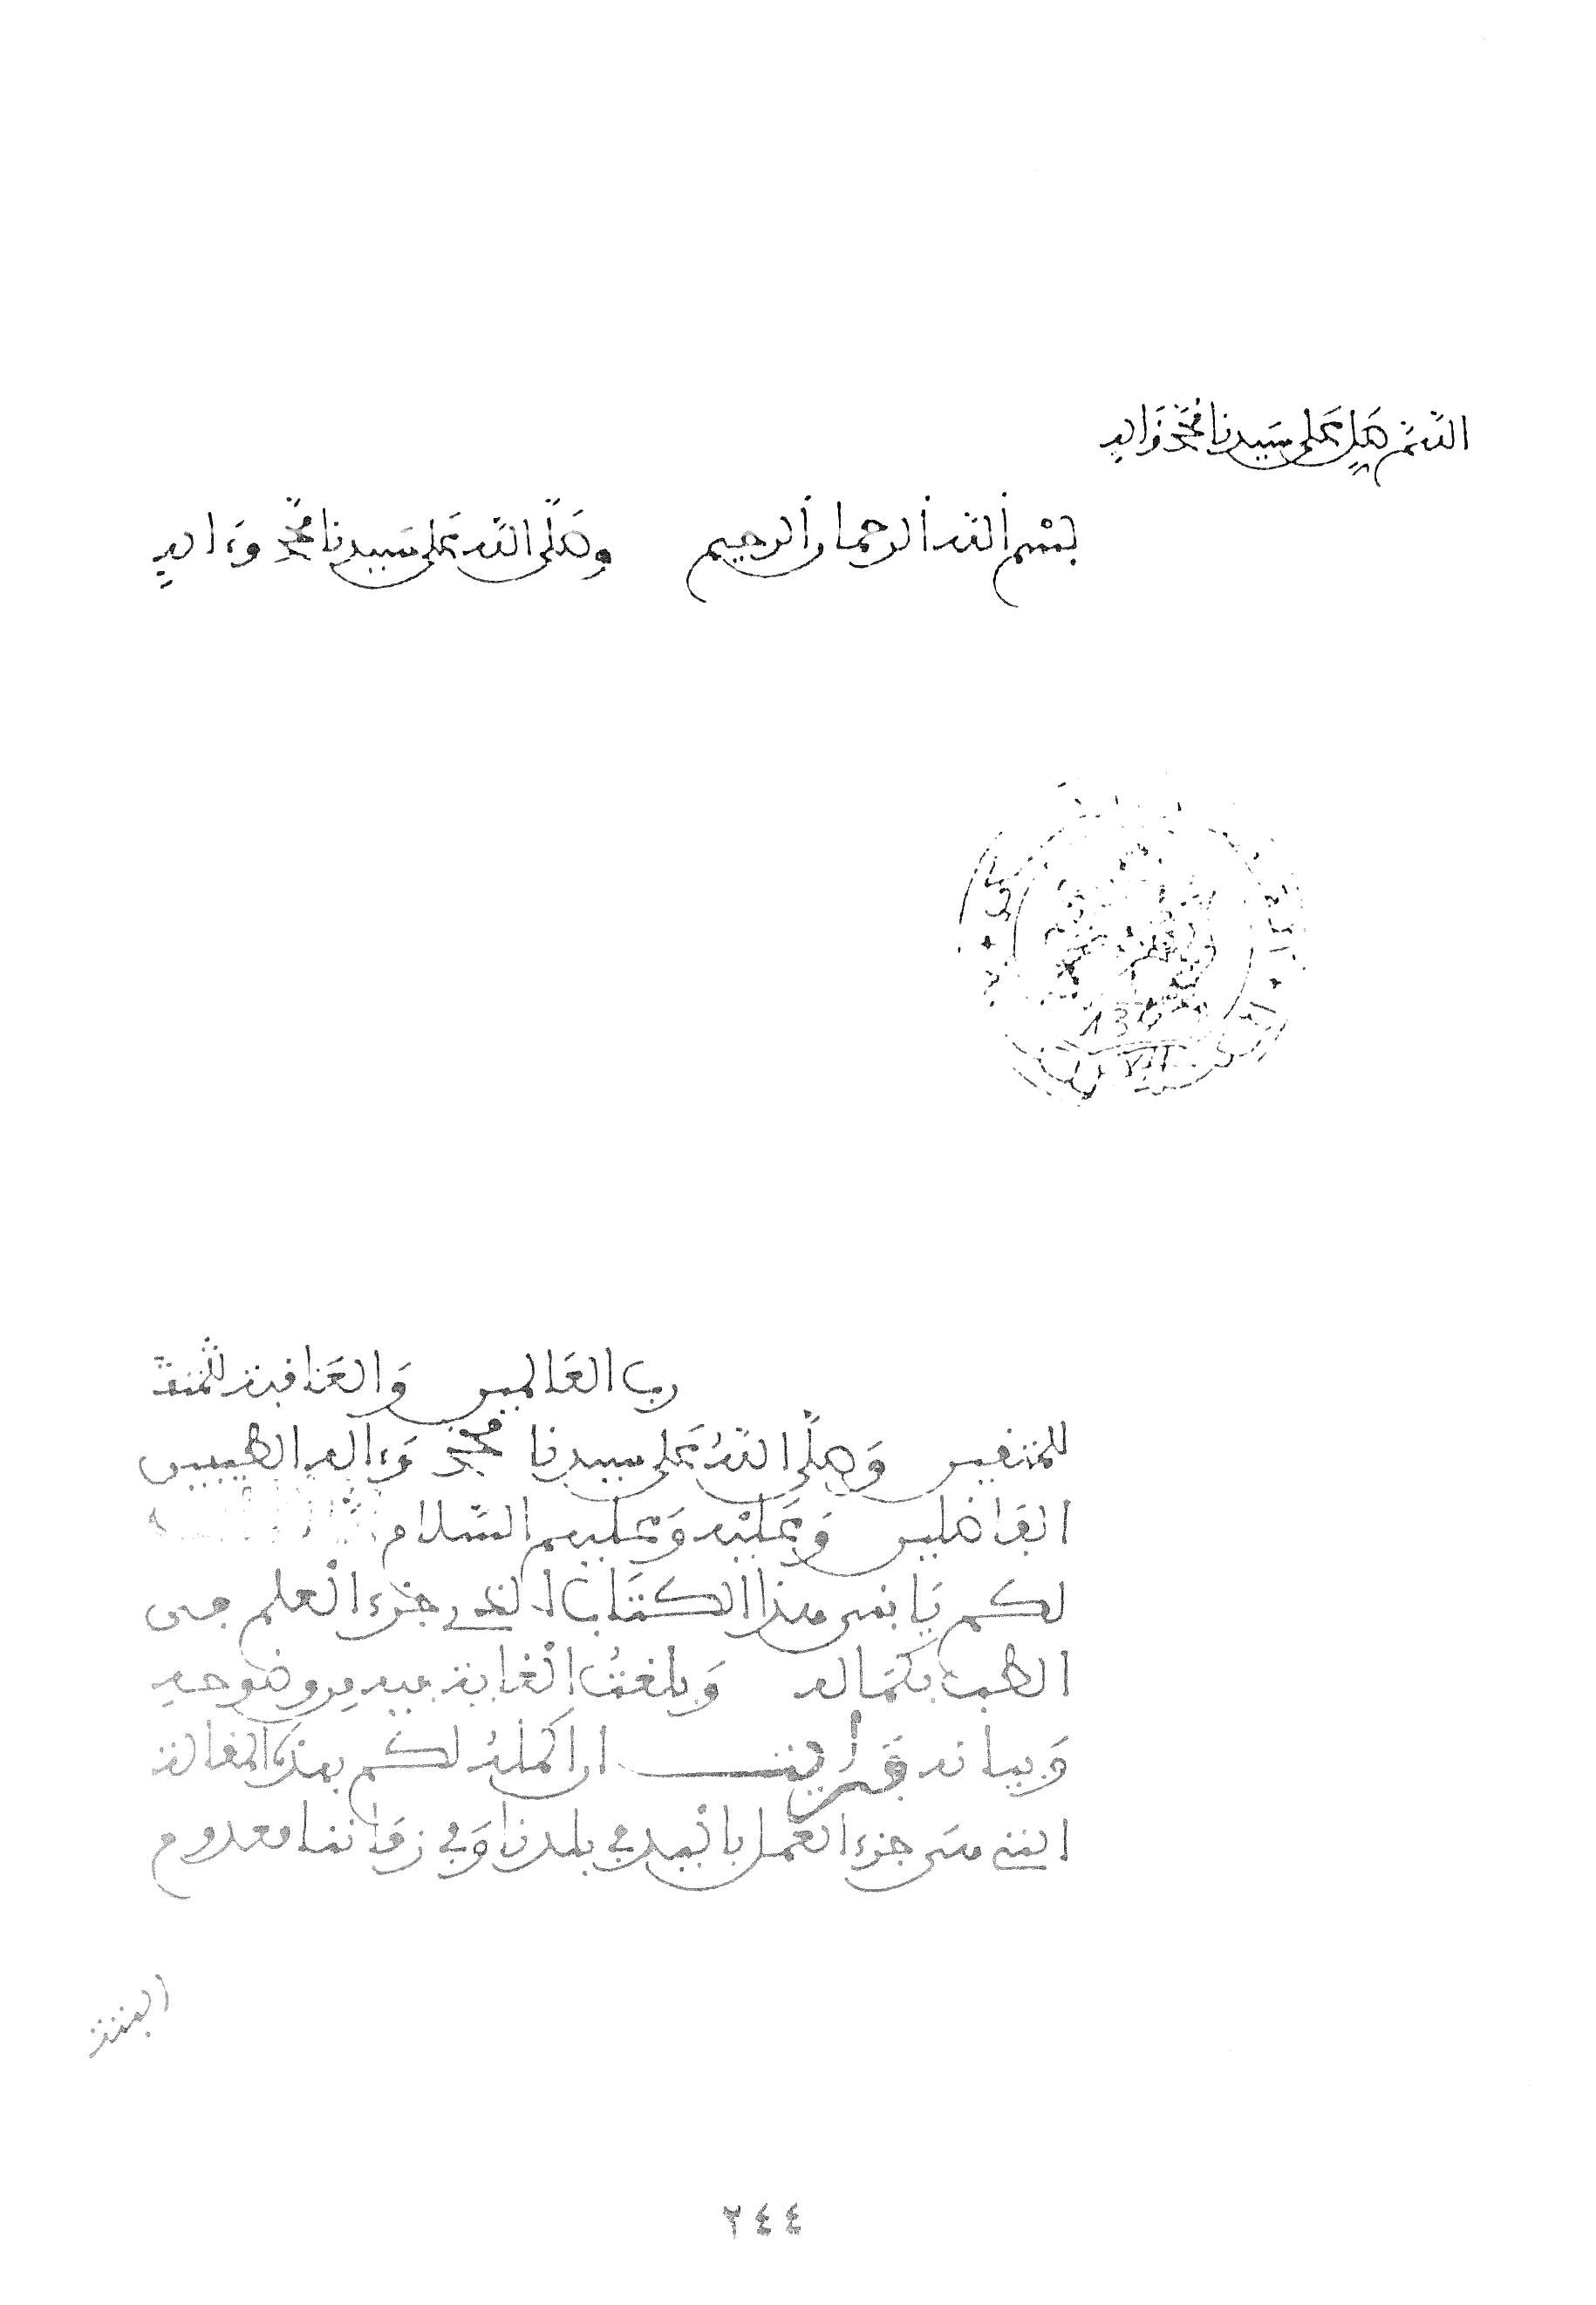 اللهم صل على سيدنا محمد وءاله
بسم الله الرحمان الرحيم وصلى الله على سيدنا محمد وءاله
رب العالمين والعاقبة للمتقـ
للمتقين وصلى الله على سيدنا محمد وءاله الطيبين
الفاضلين وعليه وعليهم السلام
لكم يا بني هذا الكتاب الذي جزء العلم في
الطب بكماله وبلغت الغاية فيه من وضوحه
وبيانه فرأيت ان اكمله لكم بهذه المقالة
التي هي جزء العمل باليد في بلدنا وفي زماننا معدوم
البتة
٢٤٤